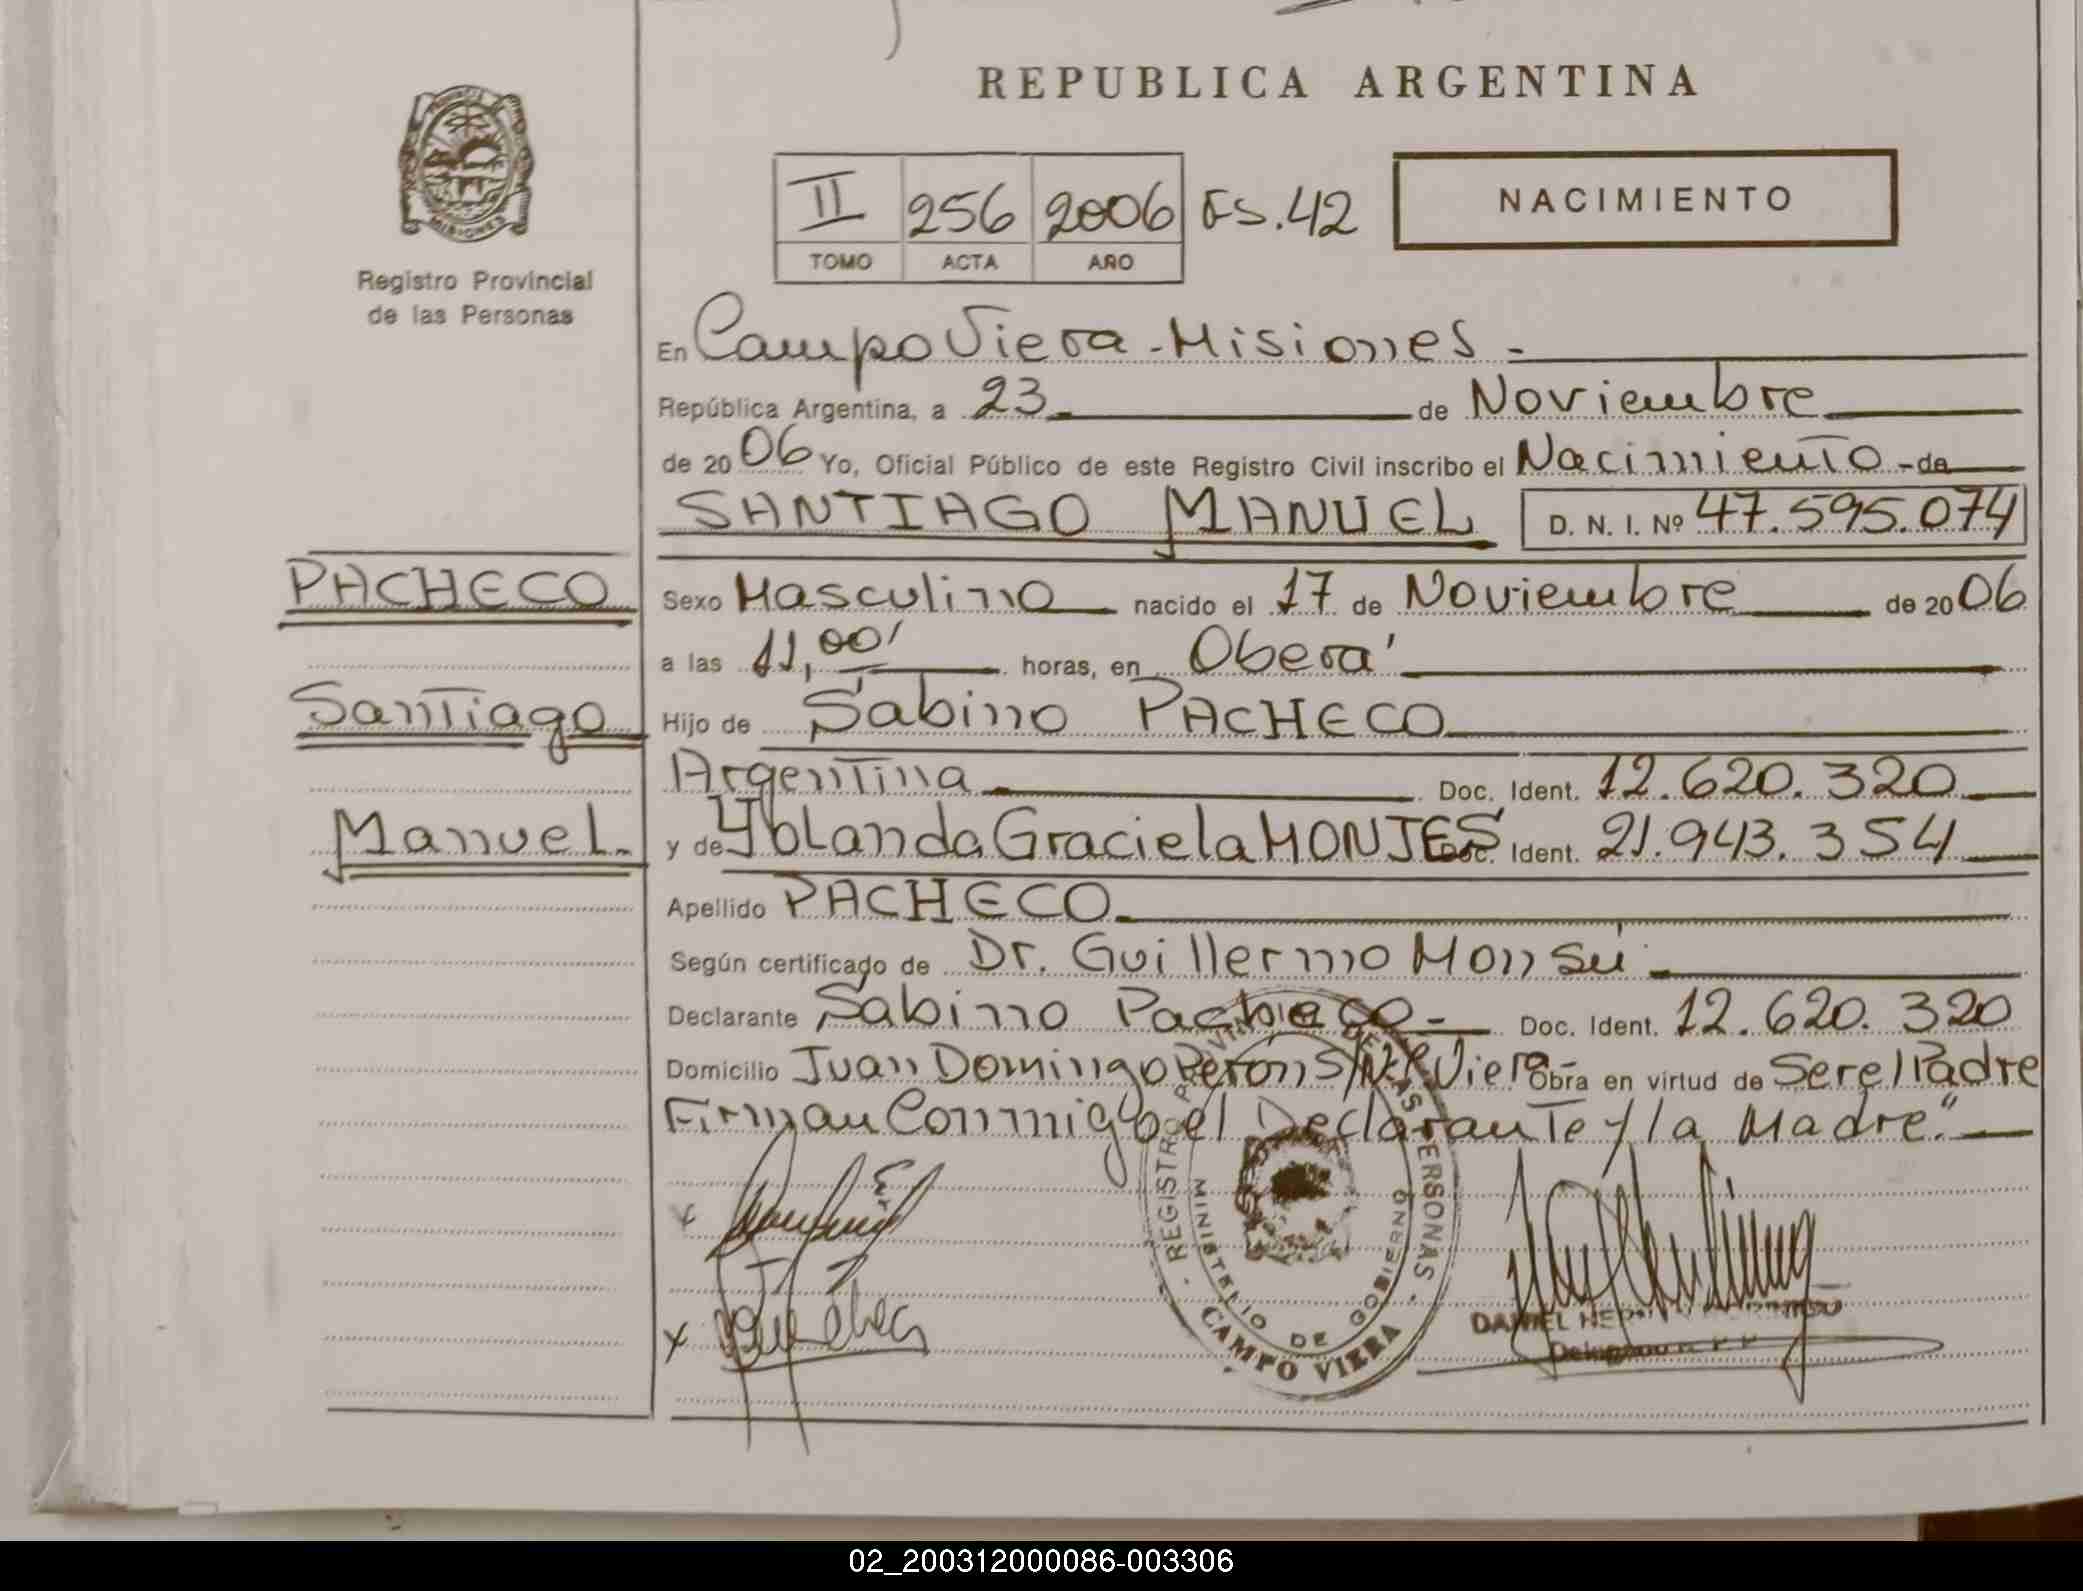 REPUBLICA ARGENTINA
MISIONES
Registro Provincial
de las Personas
II 256 2006 Fs.42
TOMO ACTA AÑO
NACIMIENTO
En Campo Viera - Misiones -
República Argentina, a 23 de Noviembre
de 2006 Yo, Oficial Público de este Registro Civil inscribo el Nacimiento - de
SANTIAGO MANUEL D. N. I. Nº 47.595.074
PACHECO
Sexo Masculino nacido el 17 de Noviembre de 2006
a las 11,00' horas, en Oberá
Santiago
Hijo de Sabino PACHECO
Argentina Doc. Ident. 12.620.320
Manuel.
y de Yolanda Graciela MONTES Doc. Ident. 21.943.354
Apellido PACHECO
Según certificado de Dr. Guillermo Monsú
Declarante Sabino Pacheco - Doc. Ident. 12.620.320
Domicilio Juan Domingo Perón S/N. Viera - Obra en virtud de Ser el Padre
Firman Conmigo el Declarante y la Madre."
REGISTRO PROVINCIAL DE LAS PERSONAS
MINISTERIO DE GOBIERNO
CAMPO VIERA
DANIEL
02_200312000086-003306